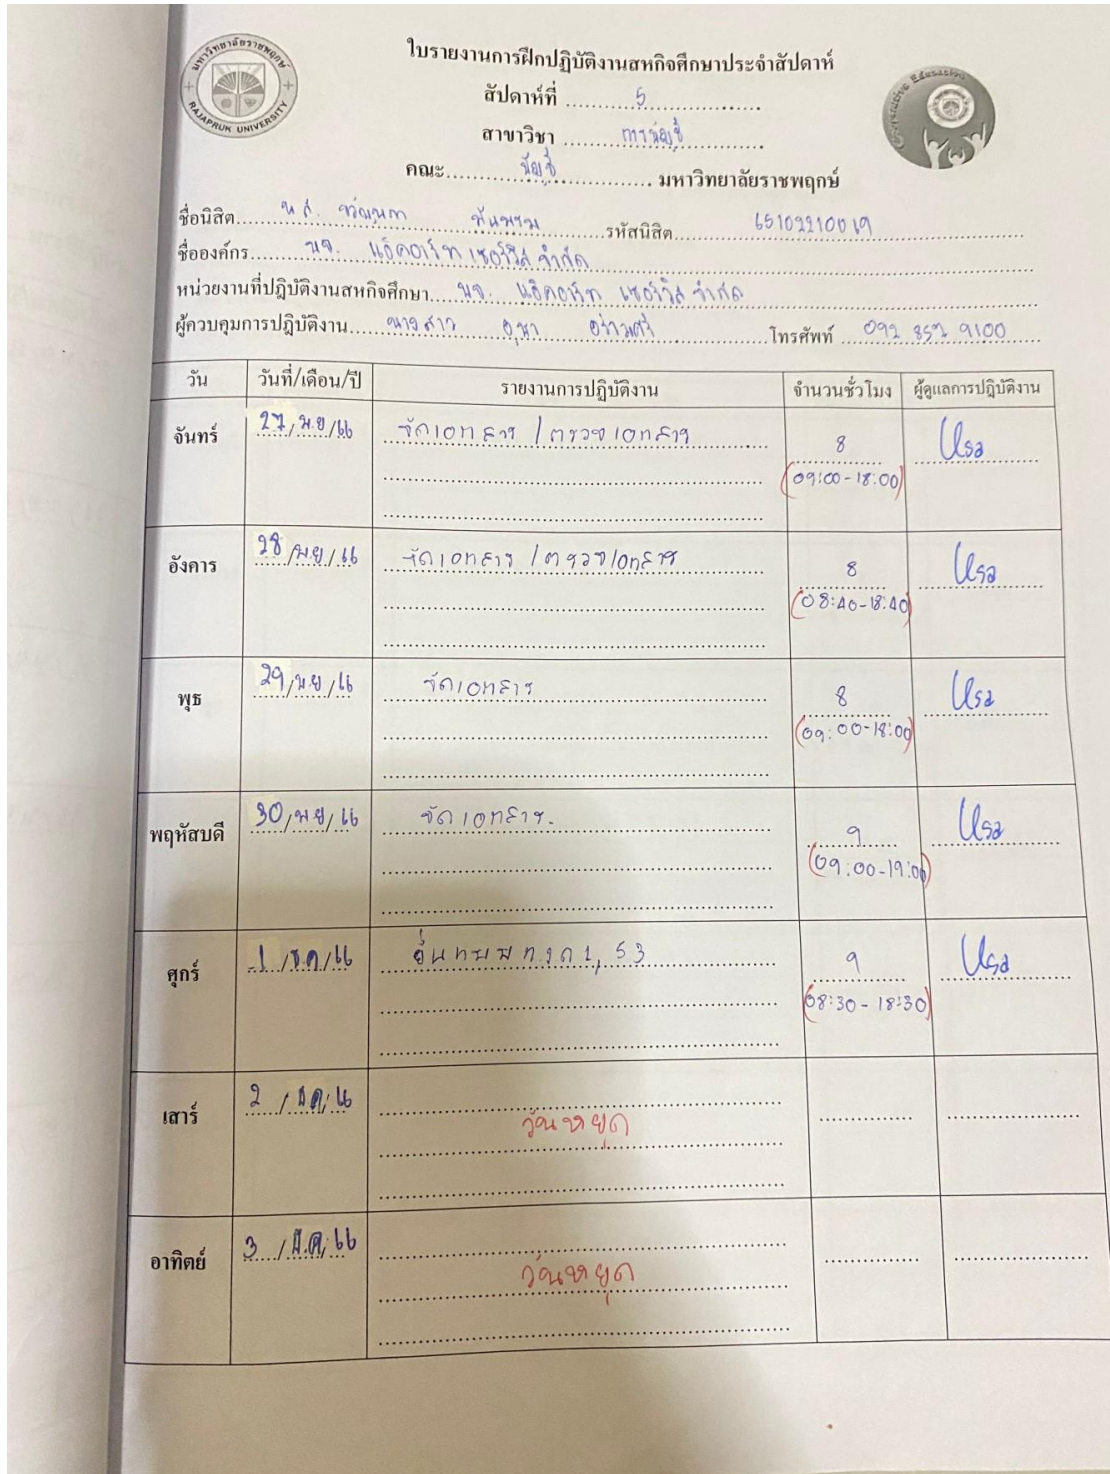 มหาวิทยาลัยราชพฤกษ์
RAJAPRUK UNIVERSITY
Cooperative Education
ใบรายงานการฝึกปฏิบัติงานสหกิจศึกษาประจำสัปดาห์
สัปดาห์ที่ 5
สาขาวิชา การบัญชี
คณะ บัญชี มหาวิทยาลัยราชพฤกษ์
ชื่อนิสิต น.ส. รหัสนิสิต 65102210019
ชื่อองค์กร บจ. แอ๊คอาร์ท เซอร์วิส จำกัด
หน่วยงานที่ปฏิบัติงานสหกิจศึกษา บจ. แอ๊คอาร์ท เซอร์วิส จำกัด
ผู้ควบคุมการปฏิบัติงาน นางสาว อุษา โทรศัพท์ 092 852 9100
วัน วันที่/เดือน/ปี รายงานการปฏิบัติงาน จำนวนชั่วโมง ผู้ดูแลการปฏิบัติงาน
จันทร์ 27/พ.ย/66 จัดเอกสาร / ตรวจเอกสาร 8 Usa
(09:00-18:00)
อังคาร 28/พ.ย/66 จัดเอกสาร / ตรวจเอกสาร 8 Usa
(08:40-18:40)
พุธ 29/พ.ย/66 จัดเอกสาร 8 Usa
(09:00-18:00)
พฤหัสบดี 30/พ.ย/66 จัดเอกสาร. 9 Usa
(09:00-19:00)
ศุกร์ 1/ธ.ค/66 ยื่นทบทภ.ง.ด 1, 53 9 Usa
(08:30-18:30)
เสาร์ 2/ธ.ค/66
วันหยุด
อาทิตย์ 3/ธ.ค/66
วันหยุด